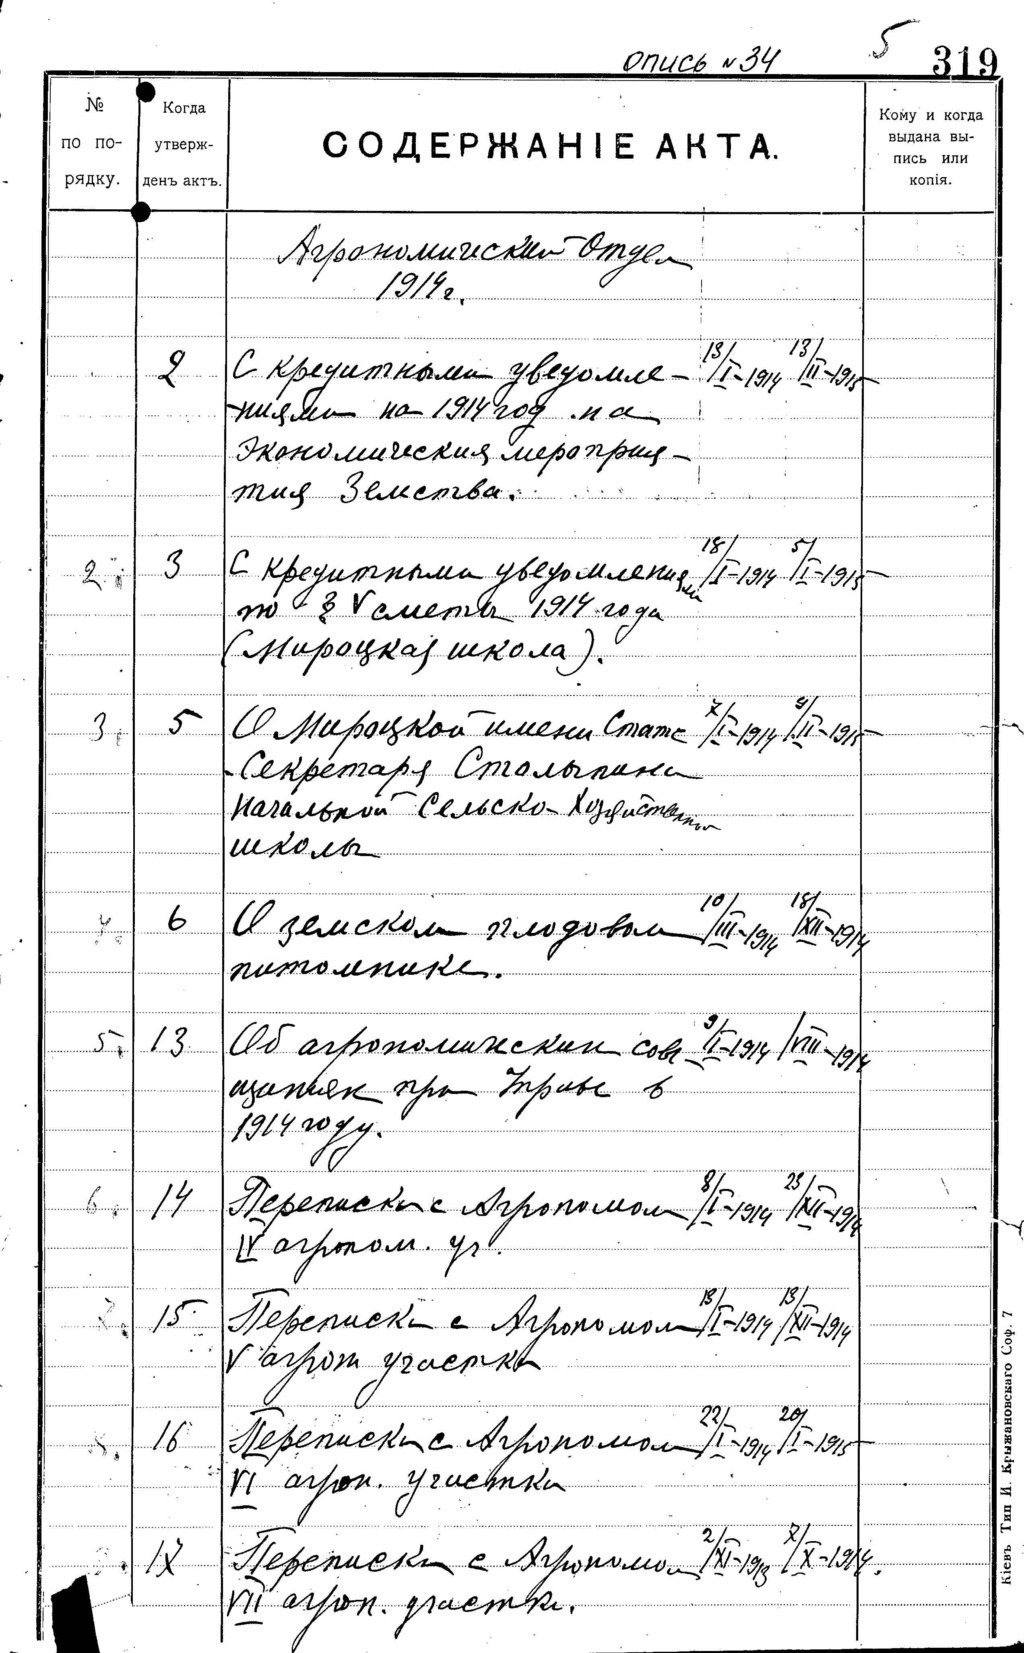 опись №34
5
319
№ по по-рядку.
Когда утверж-денъ актъ.
СОДЕРЖАНІЕ АКТА.
Кому и когда выдана вы-пись или копія.
Агрономический Отдел
1914г.
2 С кредитными уведомле- 13/I-1914 13/II-1915
ниями на 1914 год на
Экономическия мероприя-
тия Земства.
2. 3 С кредитными уведомлениями 18/I-1914 5/I-1915
по § V сметы 1914 года
(Мироцкая школа).
3. 5 О Мироцкой имени Статс 7/I-1914 9/II-1915
-Секретаря Столыпина
Начальной Сельско-Хозяйственной
школы
4. 6 О земском плодовом 10/III-1914 18/XII-1914
питомнике.
5. 13 Об агрономических сове 9/I-1914 /VIII-1914
щаниях при Управе в
1914 году.
6. 14 Переписка с Агрономом 8/I-1914 23/XII-1914
IV агроном. уч.
7. 15 Переписка с Агрономом 13/I-1914 13/XII-1914
V агрон участка
8. 16 Переписка с Агрономом 22/I-1914 20/I-1915
VI агрон. участка
17 Переписка с Агрономом 2/XI-1913 7/X-1914.
VII агрон. участка.
Кіевъ Тип И. Крыжановскаго Соф. 7